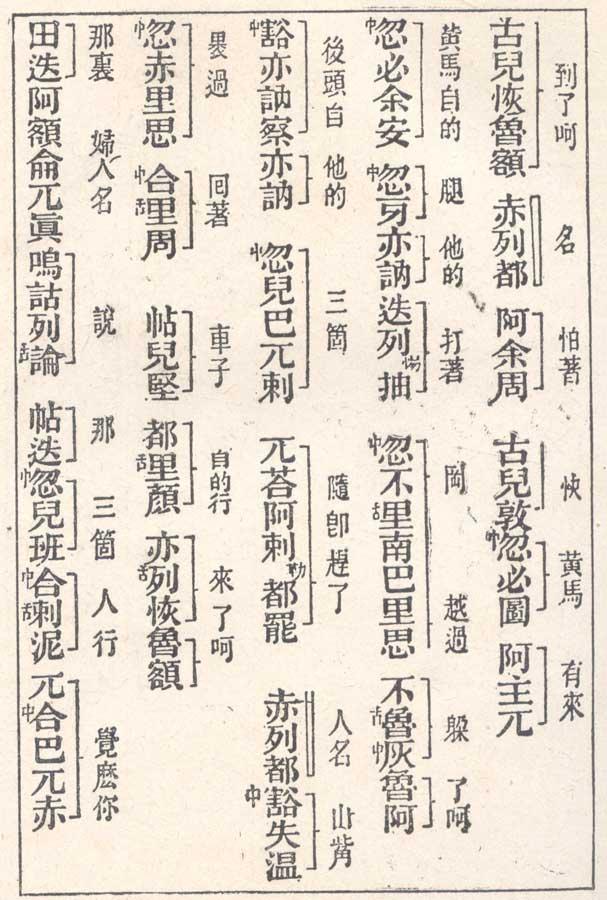 到了呵 名 怕著 快 黃馬 有來
古兒恢魯額 赤列都 阿余周 古兒敦 中忽必圖 阿主兀
黃馬自的 腿 他的 打著 岡 越過 躱 了呵
中忽必余安 中忽牙亦訥 迭列惕抽 中忽不舌里南巴里思 不舌魯中灰魯阿
後頭自 他的 三箇 隨卽趕了 人名 山觜
中豁亦訥察亦訥 中忽兒巴兀剌 兀荅阿剌勒都罷 赤列都 中豁失溫
過 回著 車子 自的行 來了呵
中忽赤里思 中合舌里周 帖兒堅 都舌里顏 亦舌列恢魯額
那裏 婦人名 說 那 三箇 人行 覺麽你
田迭 阿額侖兀眞 嗚詁列舌論 帖迭 中忽兒班 中合舌剌泥 兀中合巴兀赤